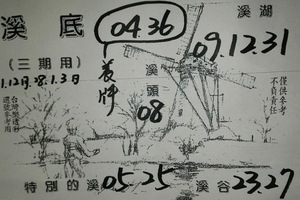 溪底
04.36
溪湖
09.12.31
(三期用)
1.12月28.1.3日
養牌
溪頭
08
僅供參考
不負責任
特別的溪
05.25
溪谷
23.27